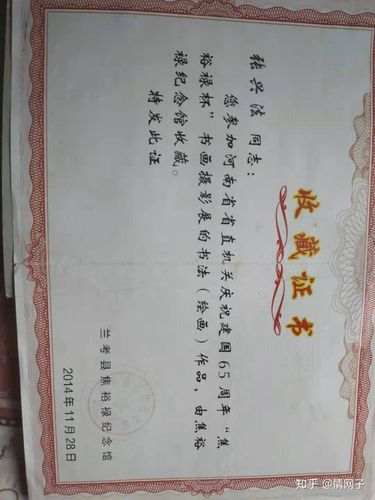 收藏证书
张兴法 同志：
您参加河南省省直机关庆祝建国65周年“焦
裕禄杯”书画摄影展的书法（绘画）作品，由焦裕
禄纪念馆收藏。
特发此证
兰考县焦裕禄纪念馆
2014年11月28日
知乎 @情网子